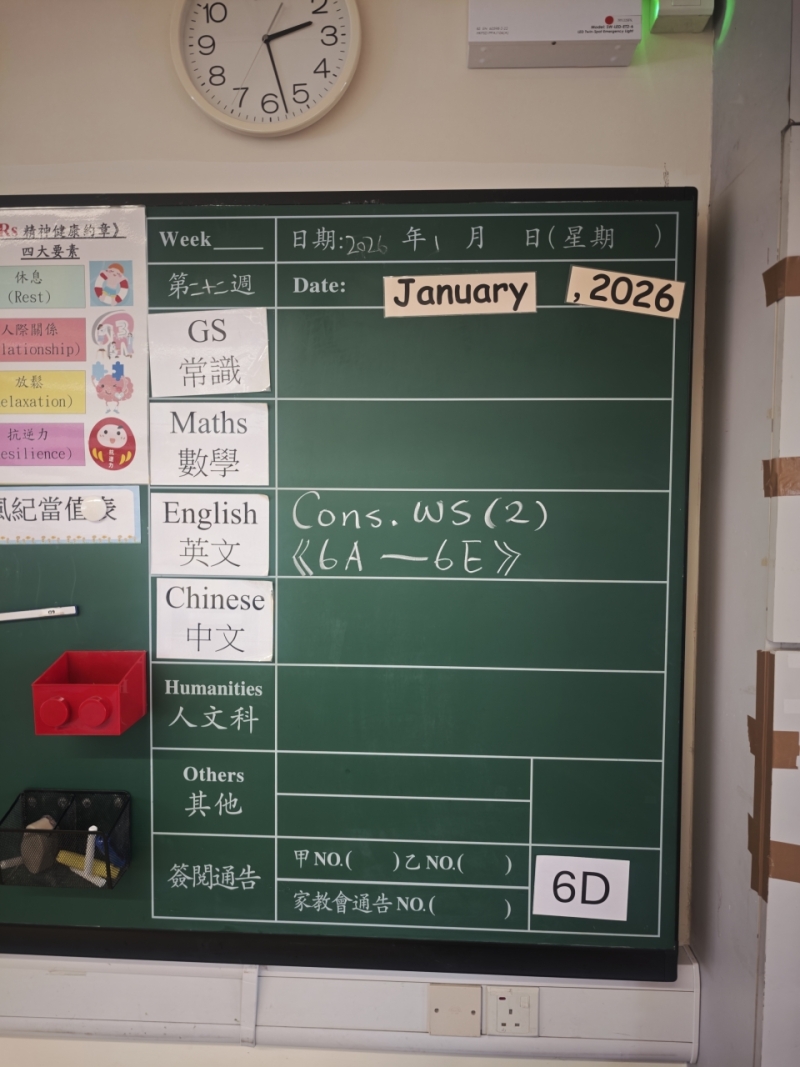 10
2
9
3
8
4
7
6
5
Rs 精神健康約章》
四大要素
休息
(Rest)
人際關係
lationship)
放鬆
elaxation)
抗逆力
esilience)
風紀當值表
Week____ 日期:2026 年 1 月 日(星期 )
第二十二週 Date: January , 2026
GS
常識
Maths
數學
English
英文
Cons. WS (2)
《6A — 6E》
Chinese
中文
Humanities
人文科
Others
其他
簽閱通告
甲 NO.( )乙 NO.( )
家教會通告 NO.( )
6D